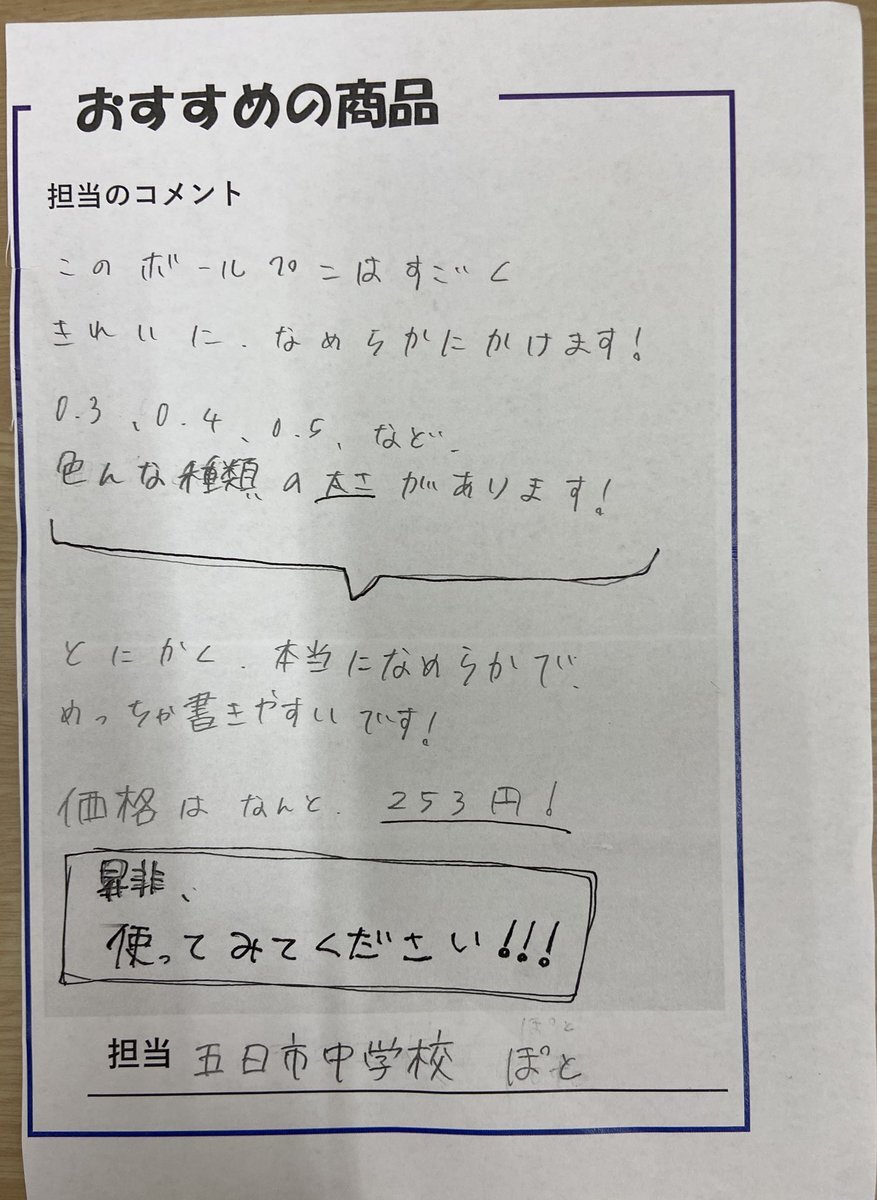 おすすめの商品
担当のコメント
このボールペンはすごく
きれいに、なめらかにかけます!
0.3、0.4、0.5、など、
色んな種類の太さがあります!
とにかく、本当になめらかで、
めっちゃ書きやすいです!
価格はなんと、253円!
是非、
使ってみてください!!!
ぽっと
担当 五日市中学校 ぽっと